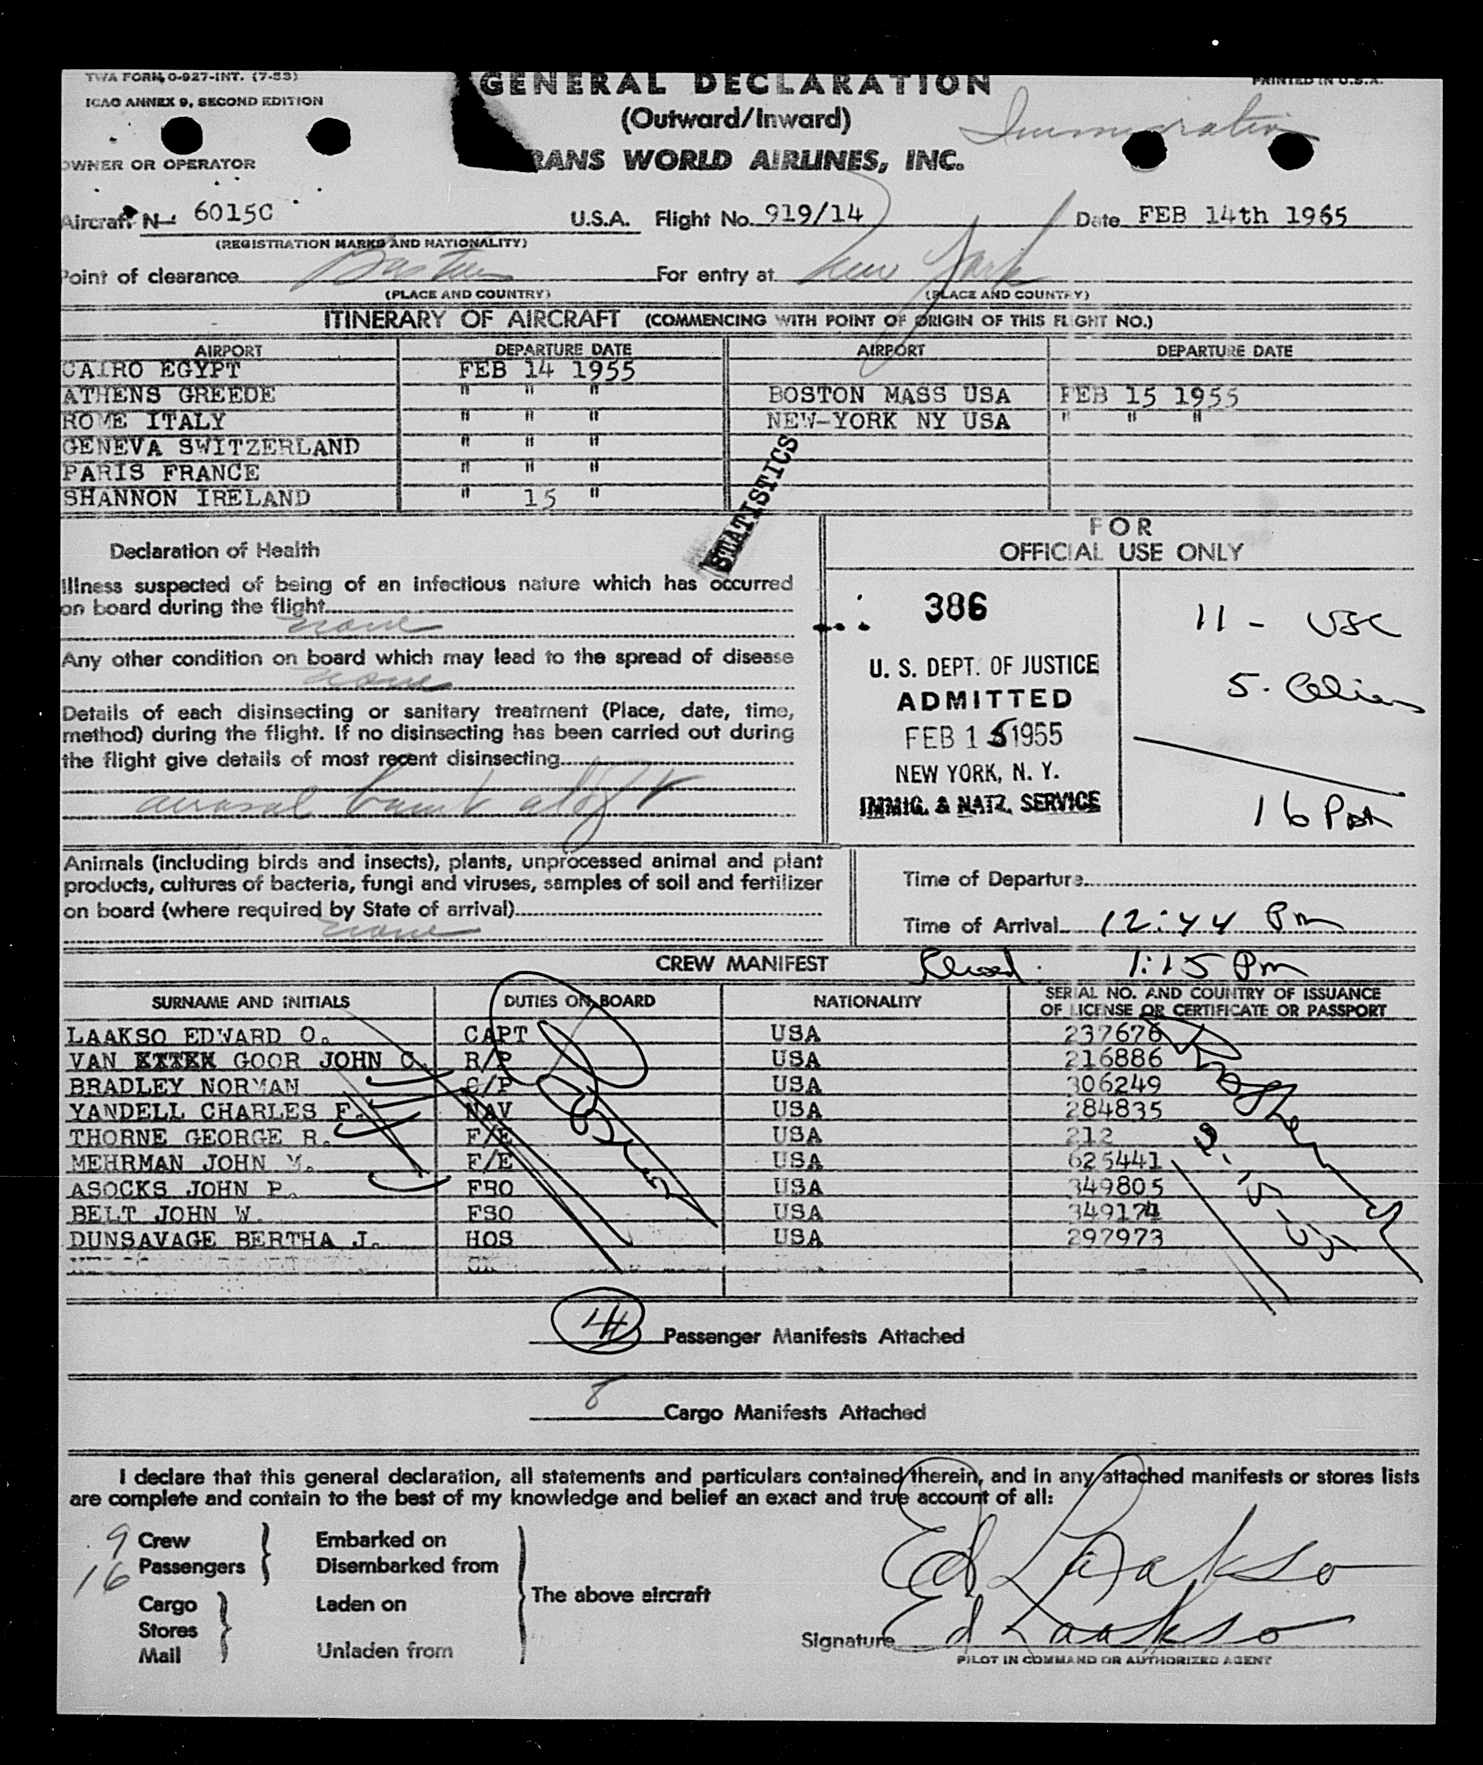 TWA FORM O-927-INT. (7-53)
GENERAL DECLARATION
PRINTED IN U.S.A.
ICAO ANNEX 9, SECOND EDITION
(Outward/Inward)
Immigration
OWNER OR OPERATOR
RANS WORLD AIRLINES, INC.
Aircraft N- 6015C U.S.A. Flight No. 919/14 Date FEB 14th 1965
(REGISTRATION MARKS AND NATIONALITY)
Point of clearance Boston For entry at New York
(PLACE AND COUNTRY) (PLACE AND COUNTRY)
ITINERARY OF AIRCRAFT (COMMENCING WITH POINT OF ORIGIN OF THIS FLIGHT NO.)
AIRPORT DEPARTURE DATE AIRPORT DEPARTURE DATE
CAIRO EGYPT FEB 14 1955
ATHENS GREEDE " " " BOSTON MASS USA FEB 15 1955
ROME ITALY " " " NEW-YORK NY USA " " "
GENEVA SWITZERLAND " " "
PARIS FRANCE " " "
SHANNON IRELAND " 15 "
STATISTICS
FOR
OFFICIAL USE ONLY
Declaration of Health
Illness suspected of being of an infectious nature which has occurred
on board during the flight
none
Any other condition on board which may lead to the spread of disease
none
Details of each disinsecting or sanitary treatment (Place, date, time,
method) during the flight. If no disinsecting has been carried out during
the flight give details of most recent disinsecting
386
U. S. DEPT. OF JUSTICE
ADMITTED
FEB 15 1955
NEW YORK, N. Y.
IMMIG. & NATZ. SERVICE
11 - USC
5. Aliens
16 Pax
Animals (including birds and insects), plants, unprocessed animal and plant
products, cultures of bacteria, fungi and viruses, samples of soil and fertilizer
on board (where required by State of arrival)
none
Time of Departure
Time of Arrival 12:44 Pm
CREW MANIFEST
1:15 Pm
SURNAME AND INITIALS DUTIES ON BOARD NATIONALITY SERIAL NO. AND COUNTRY OF ISSUANCE
OF LICENSE OR CERTIFICATE OR PASSPORT
LAAKSO EDWARD O. CAPT USA 237676
VAN GOOR JOHN C. R/P USA 216886
BRADLEY NORMAN C/P USA 306249
YANDELL CHARLES F. NAV USA 284835
THORNE GEORGE R. F/E USA 212
MEHRMAN JOHN M. F/E USA 625441
ASOCKS JOHN P. FSO USA 349805
BELT JOHN W. FSO USA 349174
DUNSAVAGE BERTHA J. HOS USA 297973
Passenger Manifests Attached
8 Cargo Manifests Attached
I declare that this general declaration, all statements and particulars contained therein, and in any attached manifests or stores lists
are complete and contain to the best of my knowledge and belief an exact and true account of all:
9 Crew Embarked on
16 Passengers Disembarked from
The above aircraft
Cargo Laden on
Stores
Mail Unladen from
Ed Laakso
Signature Ed Laakso
PILOT IN COMMAND OR AUTHORIZED AGENT